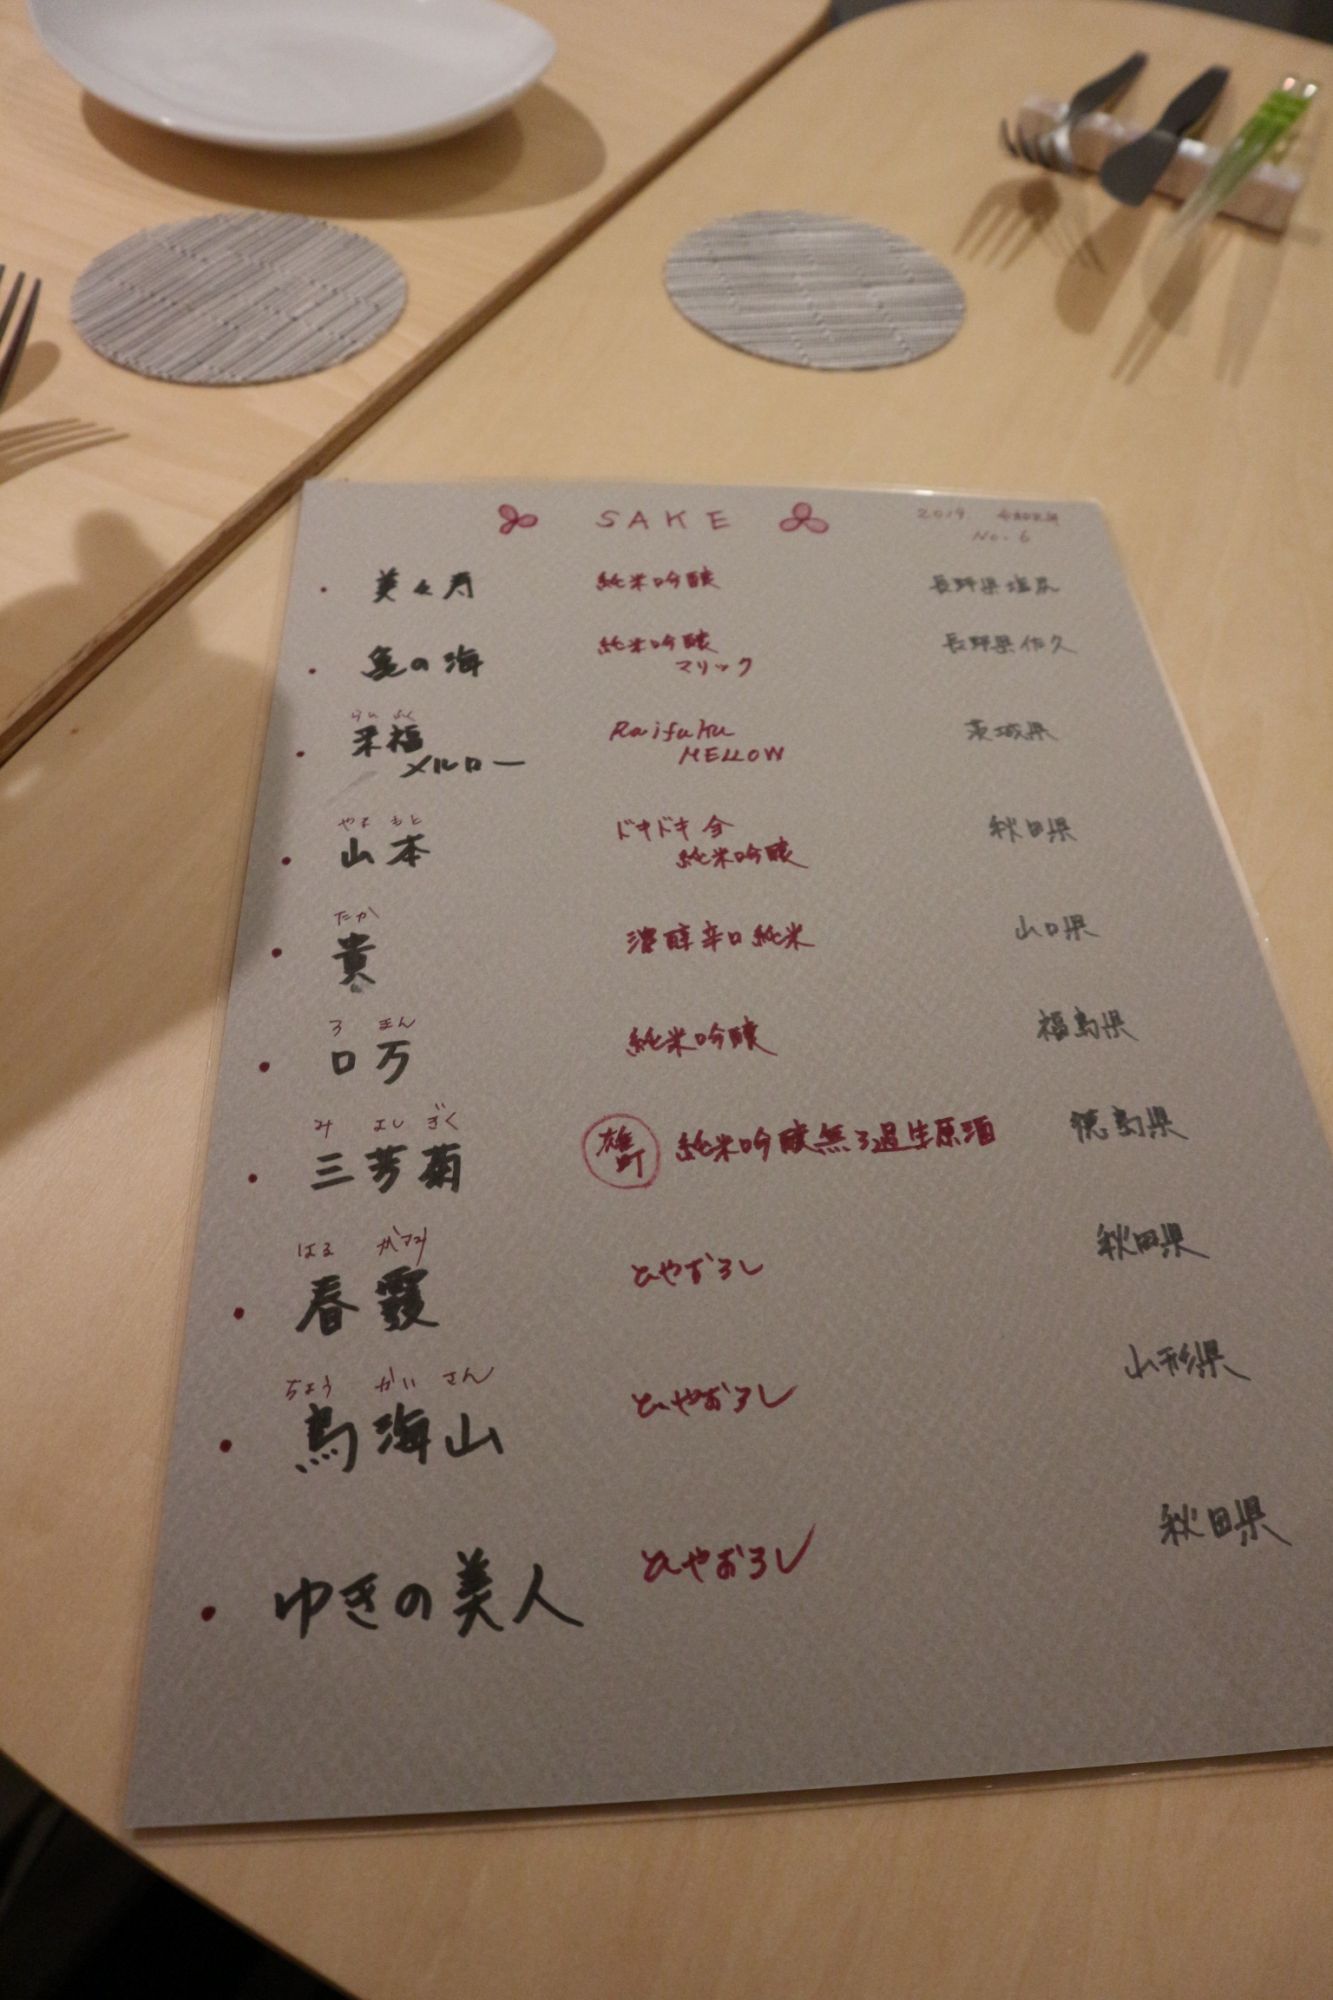 SAKE 2019 令和元年
No. 6
・美々寿 純米吟醸 長野県塩尻
・亀の海 純米吟醸 長野県佐久
マリック
らいふく
・来福 Raifuku 茨城県
メルロー MELLOW
やまもと
・山本 ドキドキ 今 秋田県
純米吟醸
たか
・貴 濃醇辛口純米 山口県
ろ まん
・口万 純米吟醸 福島県
み よし ぎく
・三芳菊 雄町 純米吟醸無ろ過生原酒 徳島県
はる がすみ
・春霞 ひやおろし 秋田県
ちょう かい さん
・鳥海山 ひやおろし 山形県
・ゆきの美人 ひやおろし 秋田県